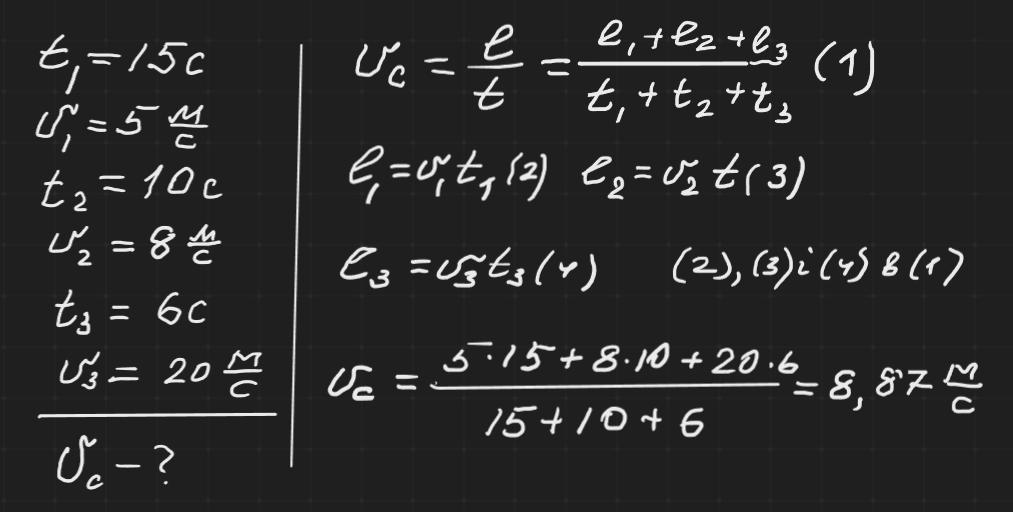 t₁ = 15с
υ₁ = 5 м/с
t₂ = 10с
υ₂ = 8 м/с
t₃ = 6с
υ₃ = 20 м/с
υc - ?
υc = l/t = (l₁ + l₂ + l₃)/(t₁ + t₂ + t₃) (1)
l₁ = υ₁t₁ (2) l₂ = υ₂t (3)
l₃ = υ₃t₃ (4) (2), (3) і (4) в (1)
υc = (5·15 + 8·10 + 20·6)/(15 + 10 + 6) = 8,87 м/с